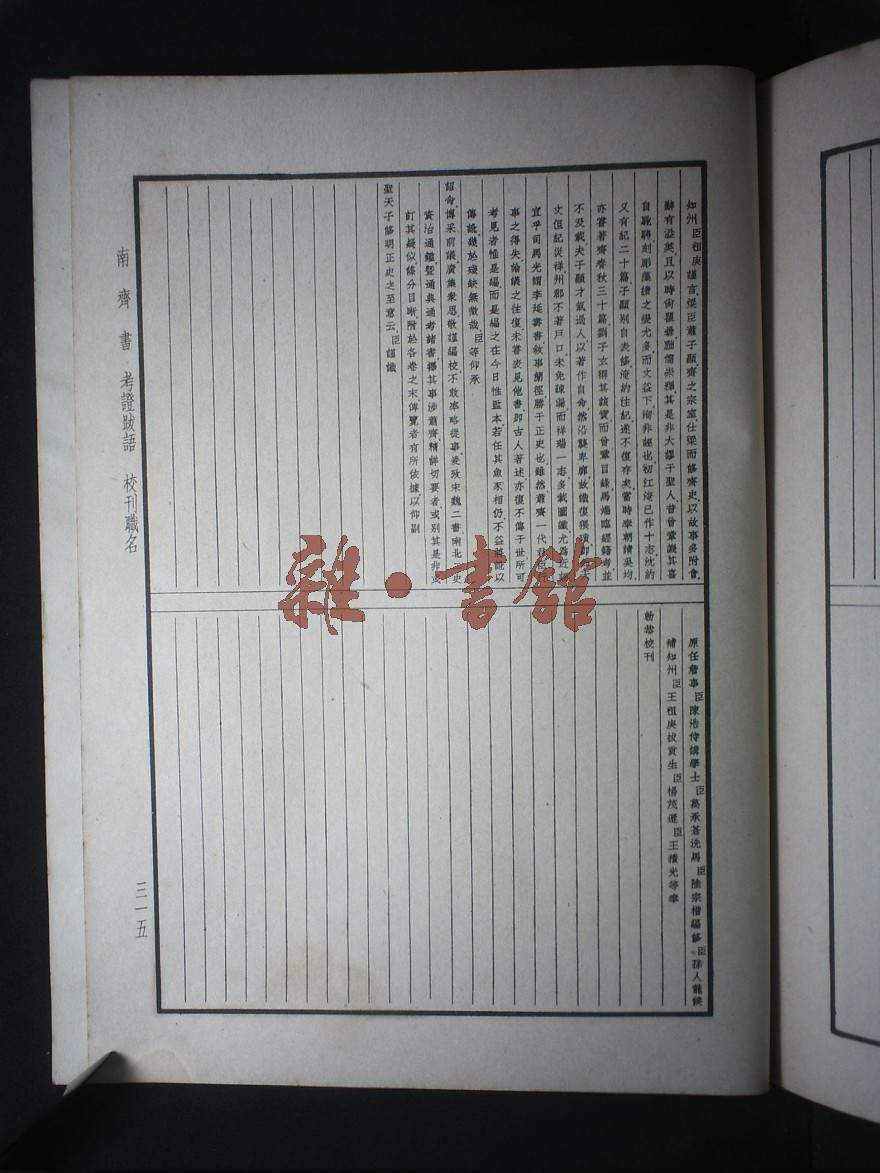 知州臣祖庚謹言梁臣蕭子顯齊之宗室仕梁而修齊史以故事多附會
辭有溢美且以時尚釋氏 其是非大謬于聖人昔曾鞏譏其喜
自馳騁刻彫藻績之變尤多而文益下 非誣也初江淹已作十志沈約
又有紀二十篇子顯別自表修淹約往紀遂不復存矣當時奉朝請吳均
亦嘗著齊春秋三十篇劉子玄稱其 實而曾鞏目錄馬端臨經籍考並
不及載夫子顯才氣過人以著作自命然沿襲卑靡故識復
文但紀災祥州郡不著戶口未免疎漏而祥瑞一志多載圖讖尤為
宜乎司馬光謂李延壽書敘事簡徑勝于正史也雖然蕭齊一代君臣行
事之得失論議之往復未嘗 見他書即古人著述亦復不傳于世所可
考見者惟是編而是編之在今日惟監本若任其魚豕相仍不益將訛以
傳訛譏於殘缺無徵哉臣等仰承
詔命博采前議廣集衆思敬謹編校不敢率略從事爰考宋魏二書南北二史
資治通鑑暨通典通考諸書擇其事涉蕭齊精詳切要者或別其是非或
訂其疑似條分目晰附於各卷之末俾覽者有所依據以仰副
聖天子修明正史之至意云臣謹識
原任詹事臣陳浩侍講學士臣萬承蒼洗馬臣陸宗楷編修臣孫人龍候
補知州臣王祖庚拔貢生臣楊茂遷臣王積光等奉
勅恭校刊
南齊書 考證跋語 校刊職名
三一五
雜·書館